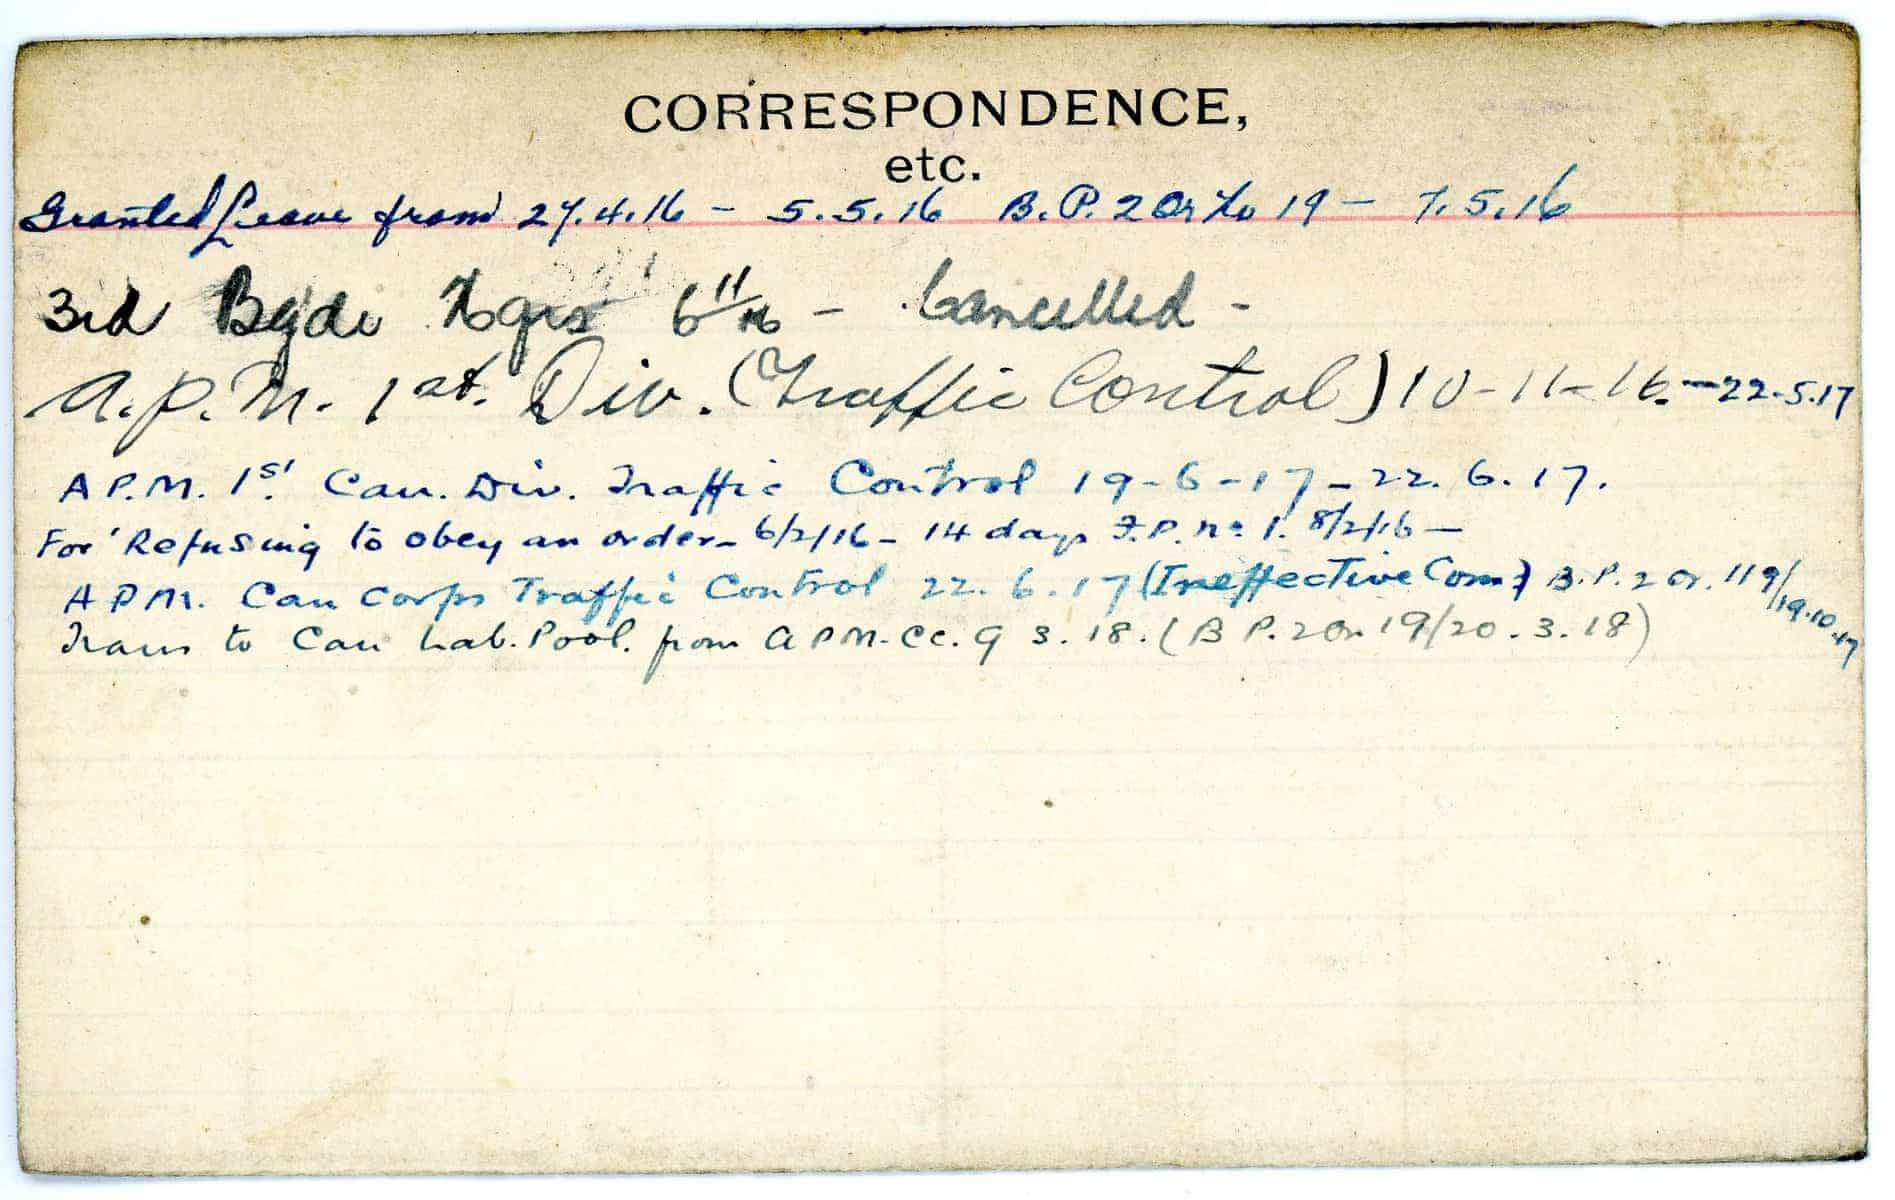 CORRESPONDENCE,
etc.
Granted Leave from 27.4.16 - 5.5.16 B.P. 2 Or No 19 - 7.5.16
3rd Bgde Hqrs 6/11/16 - Cancelled -
A.P.M. 1st. Div. (Traffic Control) 10-11-16. - 22.5.17
A P.M. 1st. Can. Div. Traffic Control 19-6-17 - 22.6.17.
For Refusing to obey an order - 6/2/16 - 14 days F.P. No 1. 8/2/16 -
A P M. Can Corps Traffic Control 22.6.17 (Ineffective Com) B.P. 2 Or. 119/19.10.17
Trans to Can Lab. Pool. from A P M. CC. 9 3.18. (B P. 2 Or 19/20.3.18)